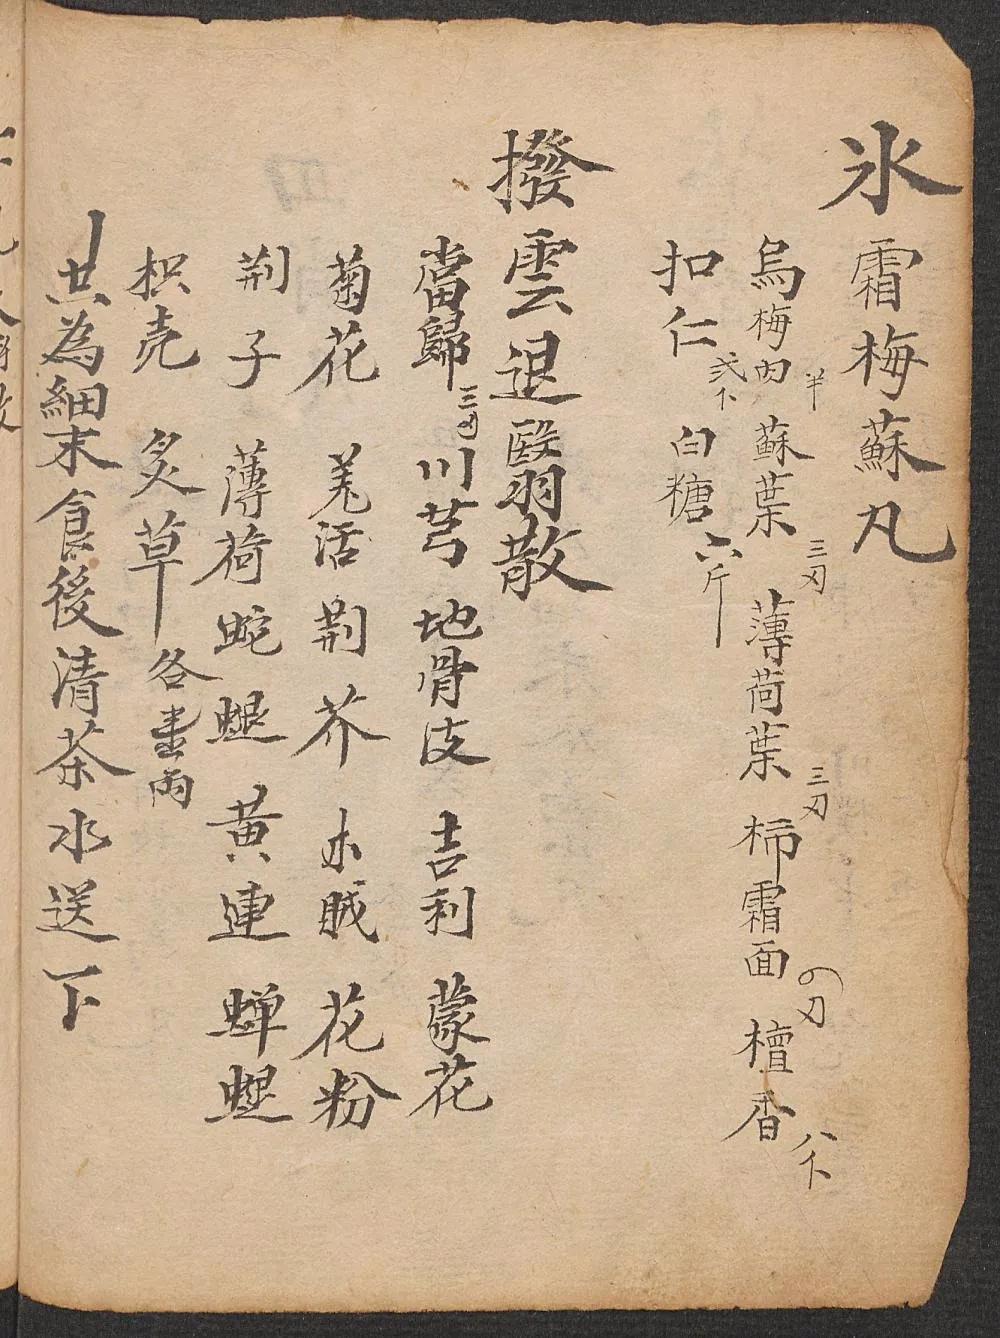 氷霜梅蘇凡
烏梅肉半蘇葉三刃薄荷葉三刃柿霜面刃檀香八仆
扣仁弍仆白糖六斤
撥雲退翳散
當歸三川芎地骨皮吉利蒙花
菊花羌活荆芥木賊花粉
荆子薄荷蛇螁黄連蟬螁
枳壳炙草各壹両
共為細末食後清茶水送下